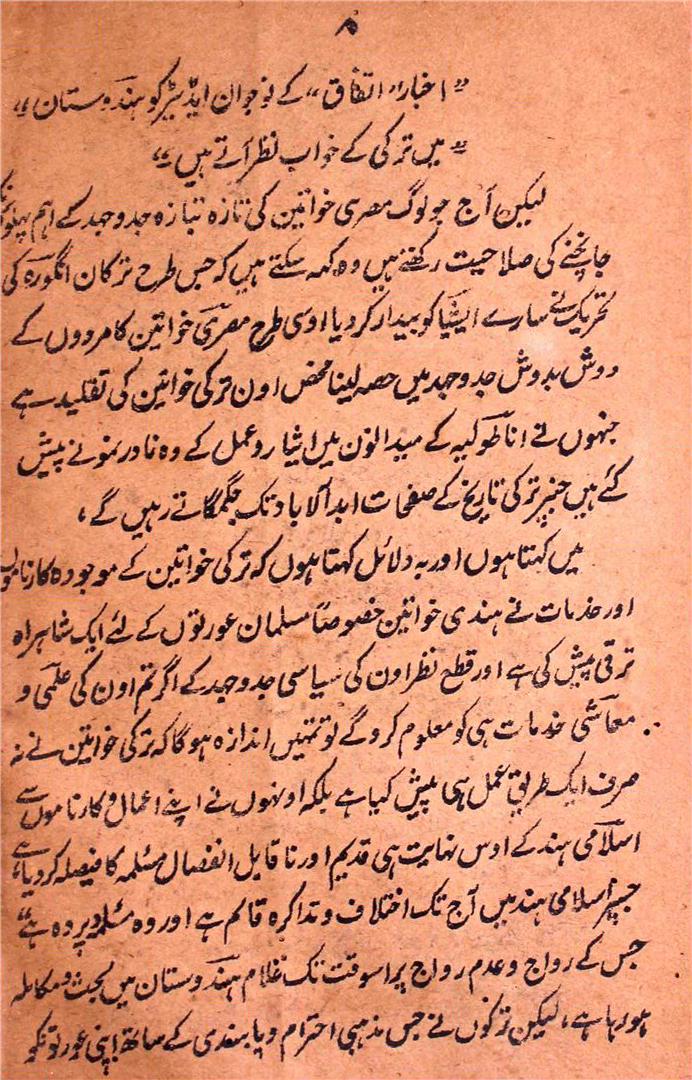 ۸
"اخبار، اتفاق،، کے نوجوان ایڈیٹر کو ہندوستان،،
"میں ترکی کے خواب نظر آتے ہیں،،
لیکن آج جو لوگ مصری خواتین کی تازہ بتازہ جدوجہد کے اہم پہلو
جانچنے کی صلاحیت رکھتے ہیں وہ کہہ سکتے ہیں کہ جس طرح ترکان انگورہ کی
تحریک نے سارے ایشیا کو بیدار کر دیا اوسی طرح مصری خواتین کا مردوں کے
دوش بدوش جدوجہد میں حصہ لینا محض اون ترکی خواتین کی تقلید ہے
جنہوں نے اناطولیہ کے میدانوں میں ایثار و عمل کے وہ نادر نمونے پیش
کئے ہیں جنپر ترکی تاریخ کے صفحات ابدالآباد تک جگمگاتے رہیں گے،
میں کہتا ہوں اور بہ دلائل کہتا ہوں کہ ترکی خواتین کے موجودہ کارناموں
اور خدمات نے ہندی خواتین خصوصاً مسلمان عورتوں کے لئے ایک شاہراہ
ترقی پیش کی ہے اور قطع نظر اون کی سیاسی جدوجہد کے اگر تم اون کی علمی و
معاشی خدمات ہی کو معلوم کرو گے تو تمہیں اندازہ ہو گا کہ ترکی خواتین نے نہ
صرف ایک طریق عمل ہی پیش کیا ہے بلکہ اونہوں نے اپنے اعمال و کارناموں سے
اسلامی ہند کے اوس نہایت ہی قدیم اور ناقابل انفصال مسئلہ کا فیصلہ کر دیا ہے
جسپر اسلامی ہند میں آج تک اختلاف و تذاکرہ قائم ہے اور وہ مسئلہ "پردہ ہے"
جس کے رواج و عدم رواج پر اسوقت تک غلام ہندوستان میں بحث و مکالمہ
ہو رہا ہے، لیکن ترکوں نے جس مذہبی احترام و پابندی کے ساتھ اپنی عورتونکو